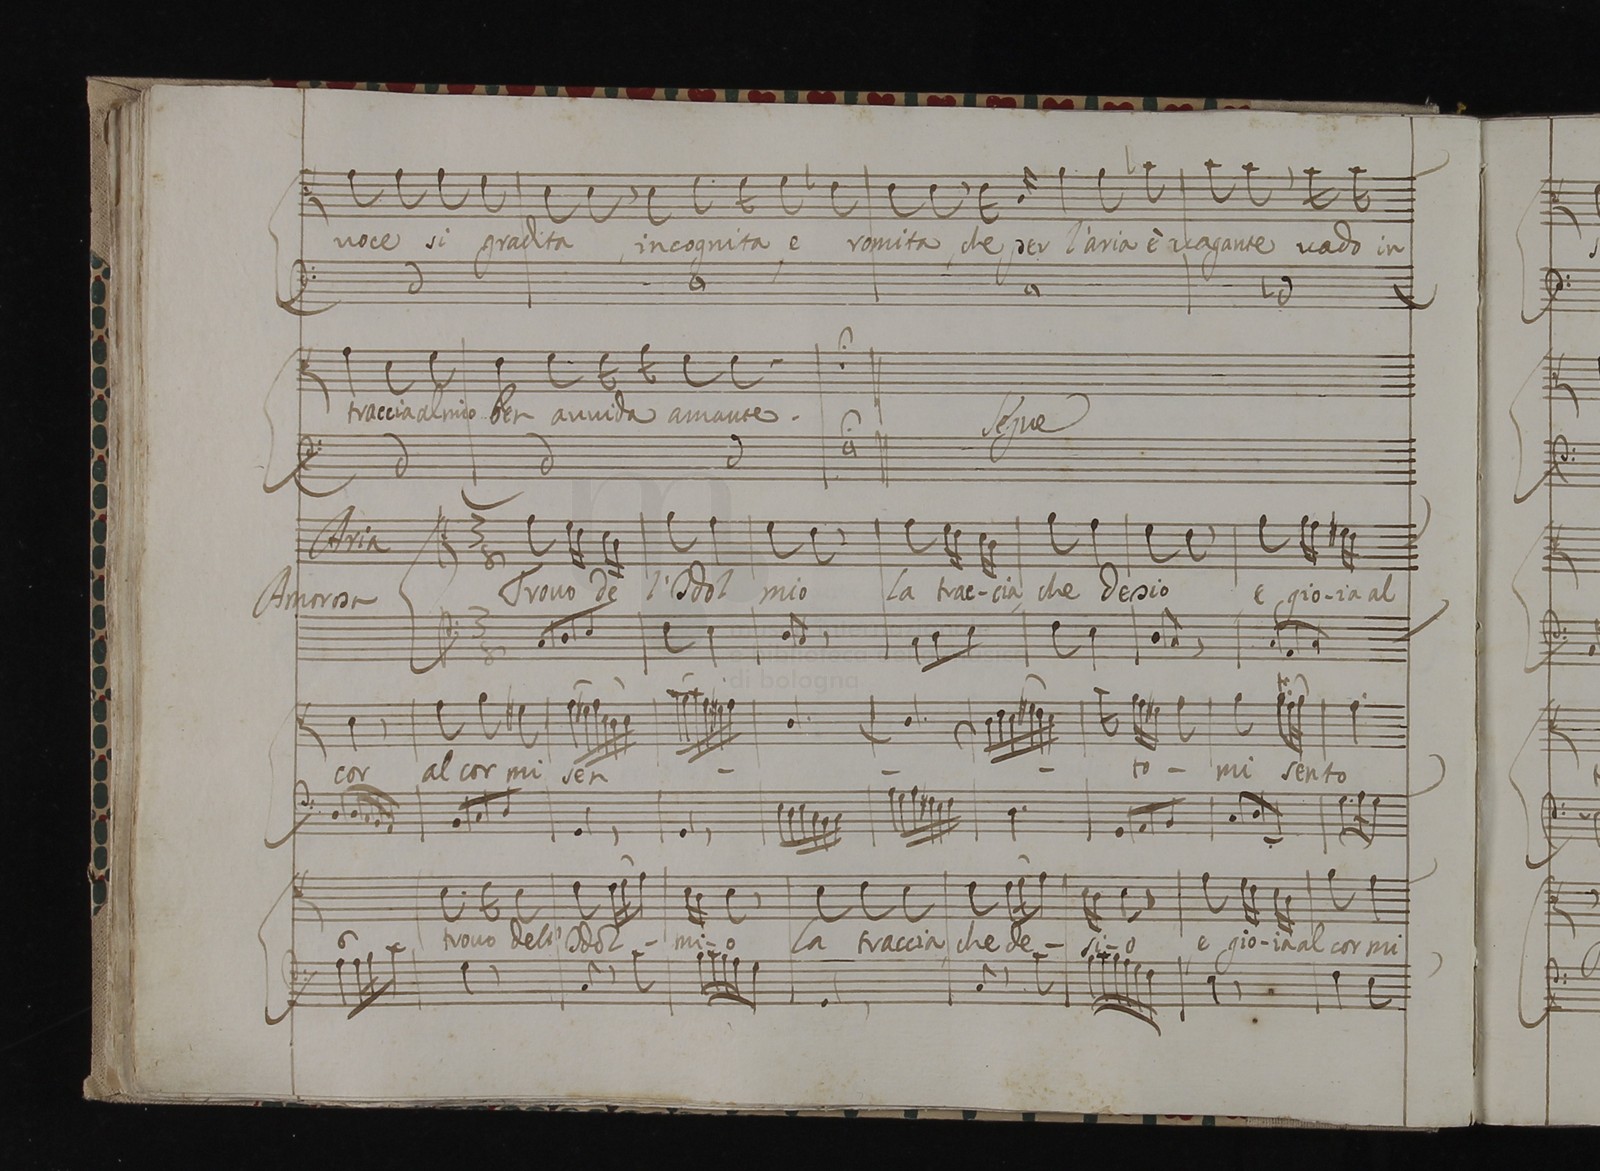 voce si gradita incognita e romita che per l'aria è vagante vado in
traccia al mio ben avvida amante. Segue
Aria
Amorosa Trovo de l'Idol mio la trac-cia che desio e gio-ia al
cor al cor mi sen - - - to - mi sento
trovo dell' Idol - mi-o la traccia che de - si-o e gio-ia al cor mi
di bologna